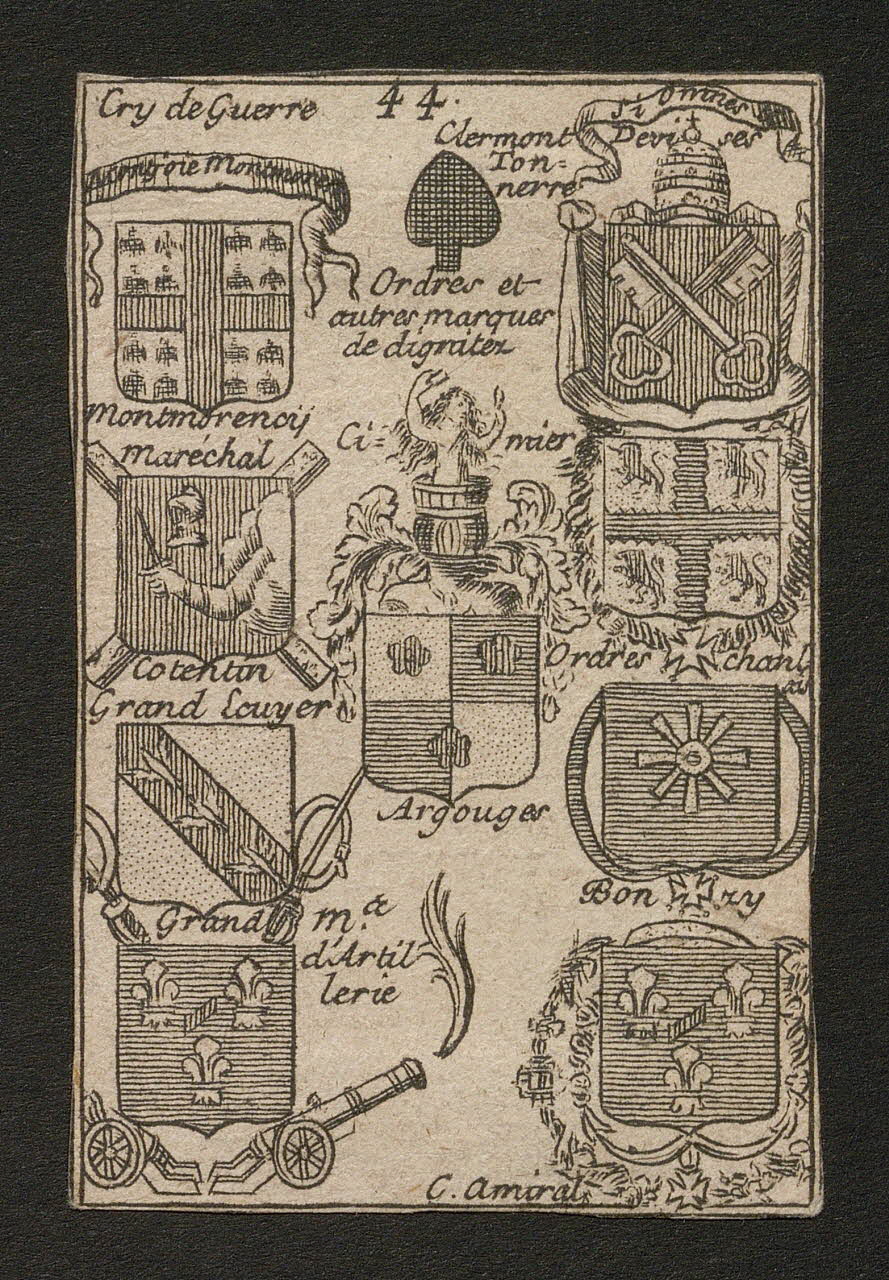 Cry de Guerre
44.
Si Omnes
Devi ses
Clermont
Ton=
nerre
Ordres et
autres marques
de dignitez
Montmorency
Maréchal
Ci= mier
Cotentin
Grand Ecuyer
Ordres chanl
Argouges
Bon zy
Grand m.e
d'Artil-
lerie
C. Amiral